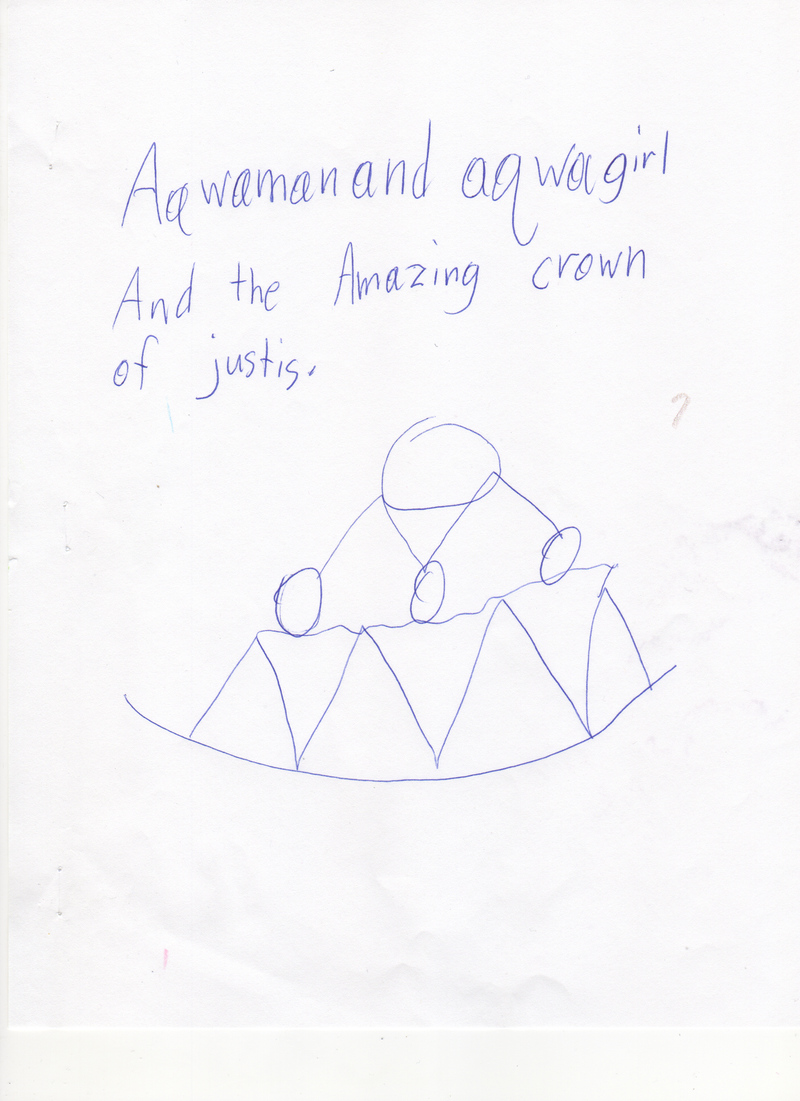 Aqwaman and aqwagirl
And the Amazing crown
of justis.